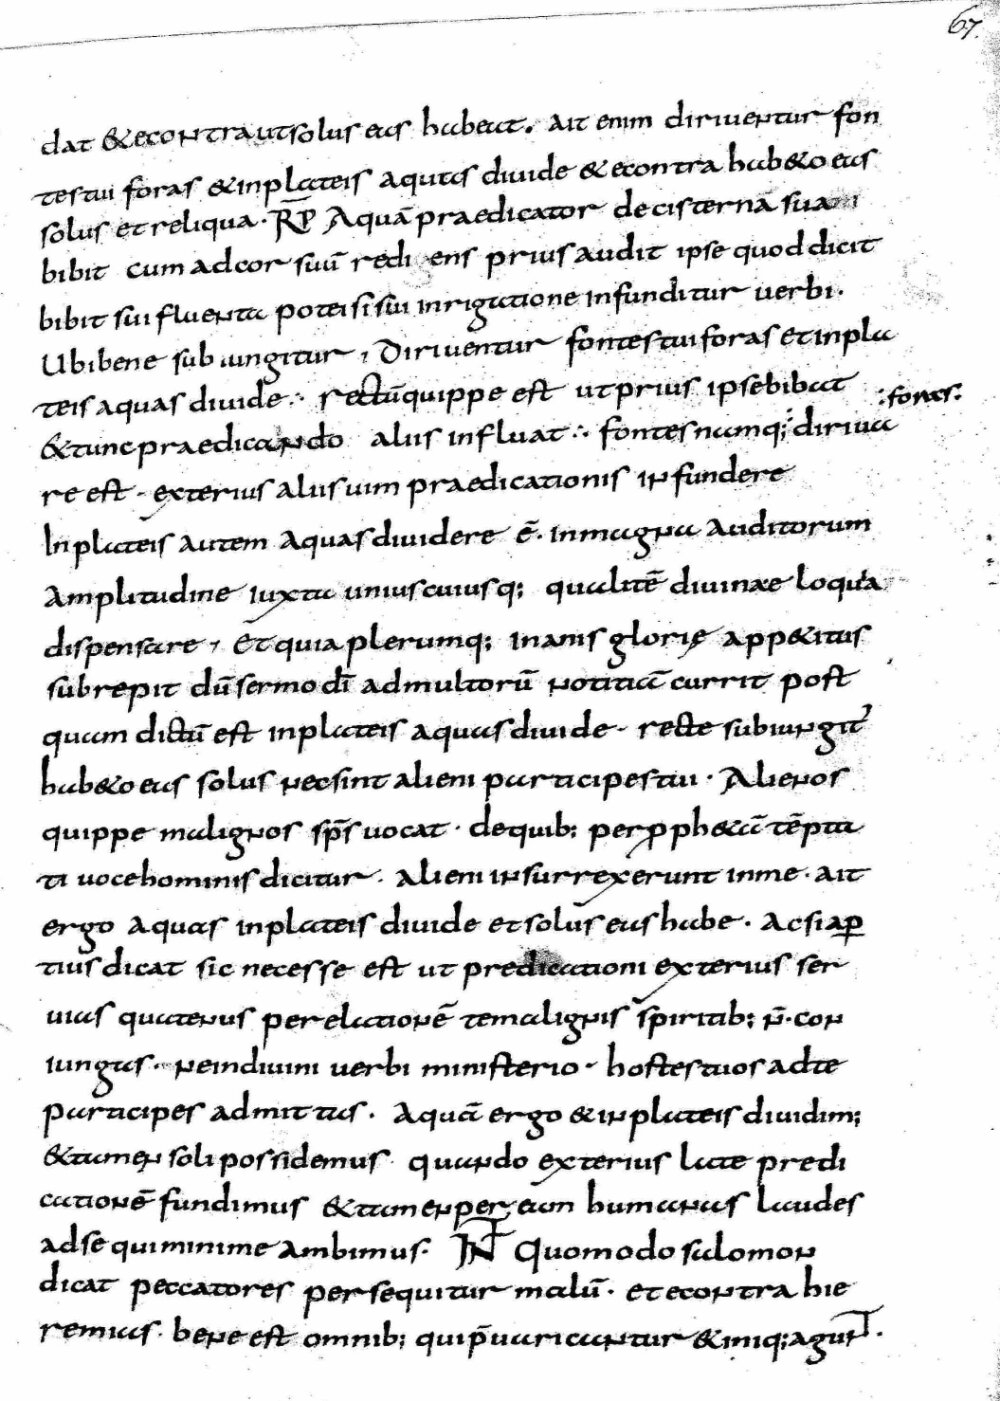 67.
dat & econtra ut solus eas habeat. Ait enim diriuentur fon
tes tui foras & in plateis aquas diuide & econtra hab&o eas
solus et reliqua · RP̄ Aquā praedicator de cisternā sua
bibit cum ad cor suū rediens prius audit ipse quod dicit
bibit sui fluenta potei si sui inrigatione infunditur uerbi.
Ubi bene subiungitur, Diriuentur fontes tui foras et in pla
teis aquas diuide ∴ rectū quippe est ut prius ipse bibat
& tunc praedicando aliis influat ∴ fontes namq; diriua
:foras:
re est · exterius aliis uim praedicationis infundere
In plateis autem aquas diuidere ē · in magna auditorum
Amplitudine iuxta uniuscuiusq; qualitē diuinae loquia
dispensare, et quia plerumq; inanis glorię app&itus
subrepit dū sermo dī ad multorū notitiā currit post
quam dictū est in plateis aquas diuide · recte subiungit̄
hab&o eas solus nec sint alieni participes tui · Alienos
quippe malignos sp̄s uocat · de quib; per pph&ā tēpta
ti uoce hominis dicitur · alieni insurrexerunt in me · ait
ergo aquas in plateis diuide et solus eas habe · ac si ap
tius dicat sic necesse est ut predicationi exterius ser
uias quatenus per elationē te malignis spiritib; n̄ · con
iungas · ne in diuini uerbi ministerio · hostes tuos ad te
participes admittas · Aquā ergo & in plateis diuidim;
& tamen soli possidemus quando exterius late predi
cationē fundimus & tamen per eam humanas laudes
adsequi minime ambimus · INT̄ Quomodo salomon
dicat peccatores persequitur malū · et econtra hie
remias · bene est omnib; qui p̄uaricantur & iniq; agunT ·